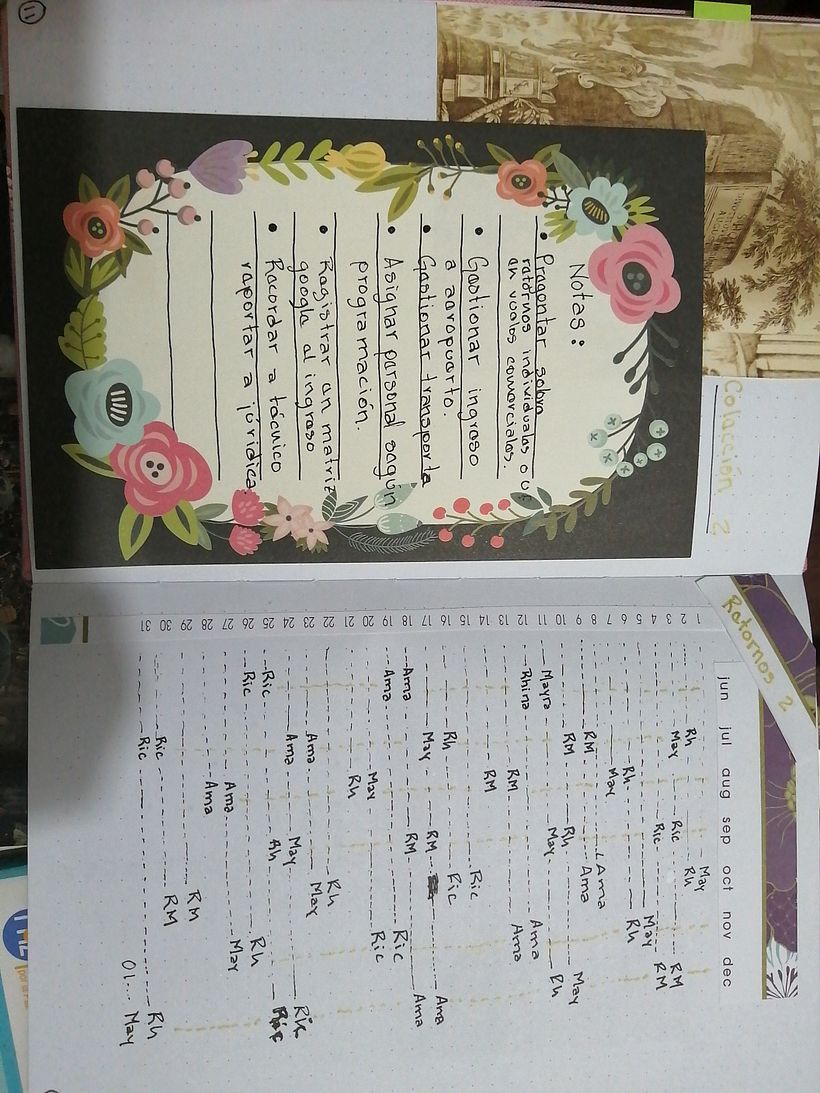 11
Colección 2
Notas:
• Preguntar sobre
retornos individuales o UE
en vuelos comerciales.
• Gestionar ingreso
a aeropuerto.
• Gestionar transporte
• Asignar personal según
programación.
• Registrar en matriz
google el ingreso
• Recordar a técnico
reportar a jurídica.
Retornos 2
jun jul aug sep oct nov dec
1 May
2 Rh Rh
3 May Ric RM
4 Ric RM
5 May
6 Rh Rh
7 May
8 Ama
9 RM Ama May
10 RM Rh
11 Mayra May Rh
12 Rhina Ama
13 RM Ama
14 RM
15 Ric
16 Rh Ric Ama
17 May RM
18 Ama RM Ama
19 Ama Ric
20 May Ric
21 Rh
22 Rh
23 Ama May
24 Ama May Rh
25 Ric Rh Ric
26 Ric Rh
27 Ama May
28 Ama
29 RM
30 Ric RM
31 Ric Rh
01... May